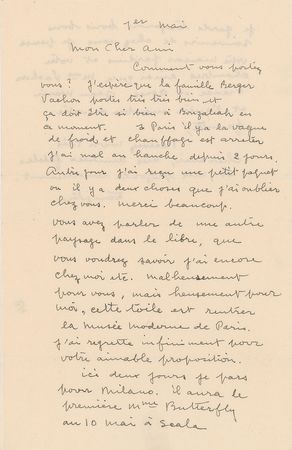 1er Mai
Mon Cher Ami
Comment vous portez
vous? J'espère que la famille Berger
Vachon portes très très bien et
ça doit être si bien à Bouzaliah en
ce moment. à Paris il y a la vague
de froid, et chauffage est arreter
j'ai mal au hanche depuis 2 jours.
Autre jour j'ai reçu une petit paquet
ou il y a deux choses que j'ai oublier
chez vous. merci beaucoup.
vous avez parler de une autre
paysage dans le libre, que
vous voudrez savoir j'ai encore
chez moi etc. malheusement
pour vous, mais heusement pour
moi, cette toile est rentrer
la musée moderne de Paris.
j'ai regrette infiniment pour
votre aimable proposition.
ici deux jours je pars
pour Milano. il aura le
première Mme Butterfly
au 10 mai à Scala